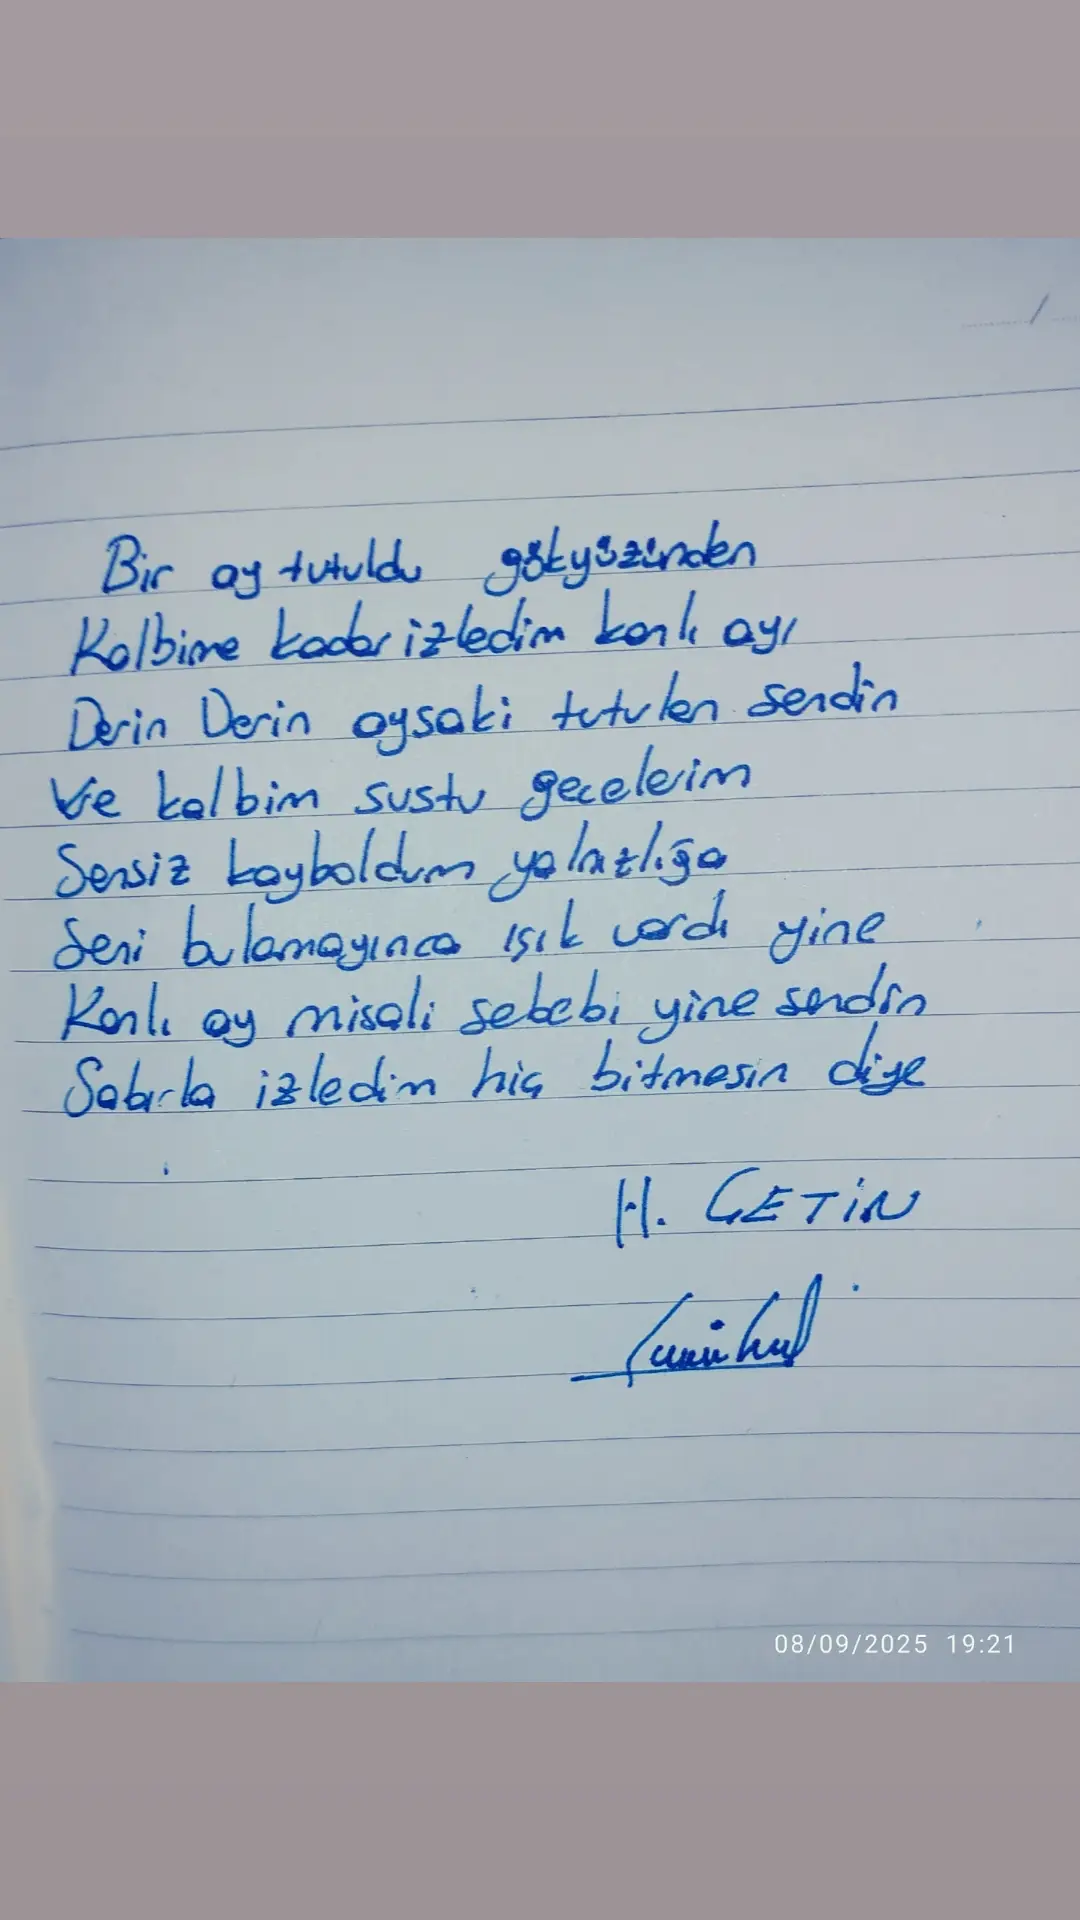 Bir ay tutuldu gökyüzünden
Kalbime kadar izledim kanlı ayı
Derin Derin oysaki tutulan sendin
Ve kalbim sustu gecelerim
Sensiz kayboldum yalnızlığa
Seni bulamayınca ışık vardı yine
Kanlı ay misali sebebi yine sendin
Sabırla izledim hiç bitmesin diye
H. ÇETİN
08/09/2025 19:21